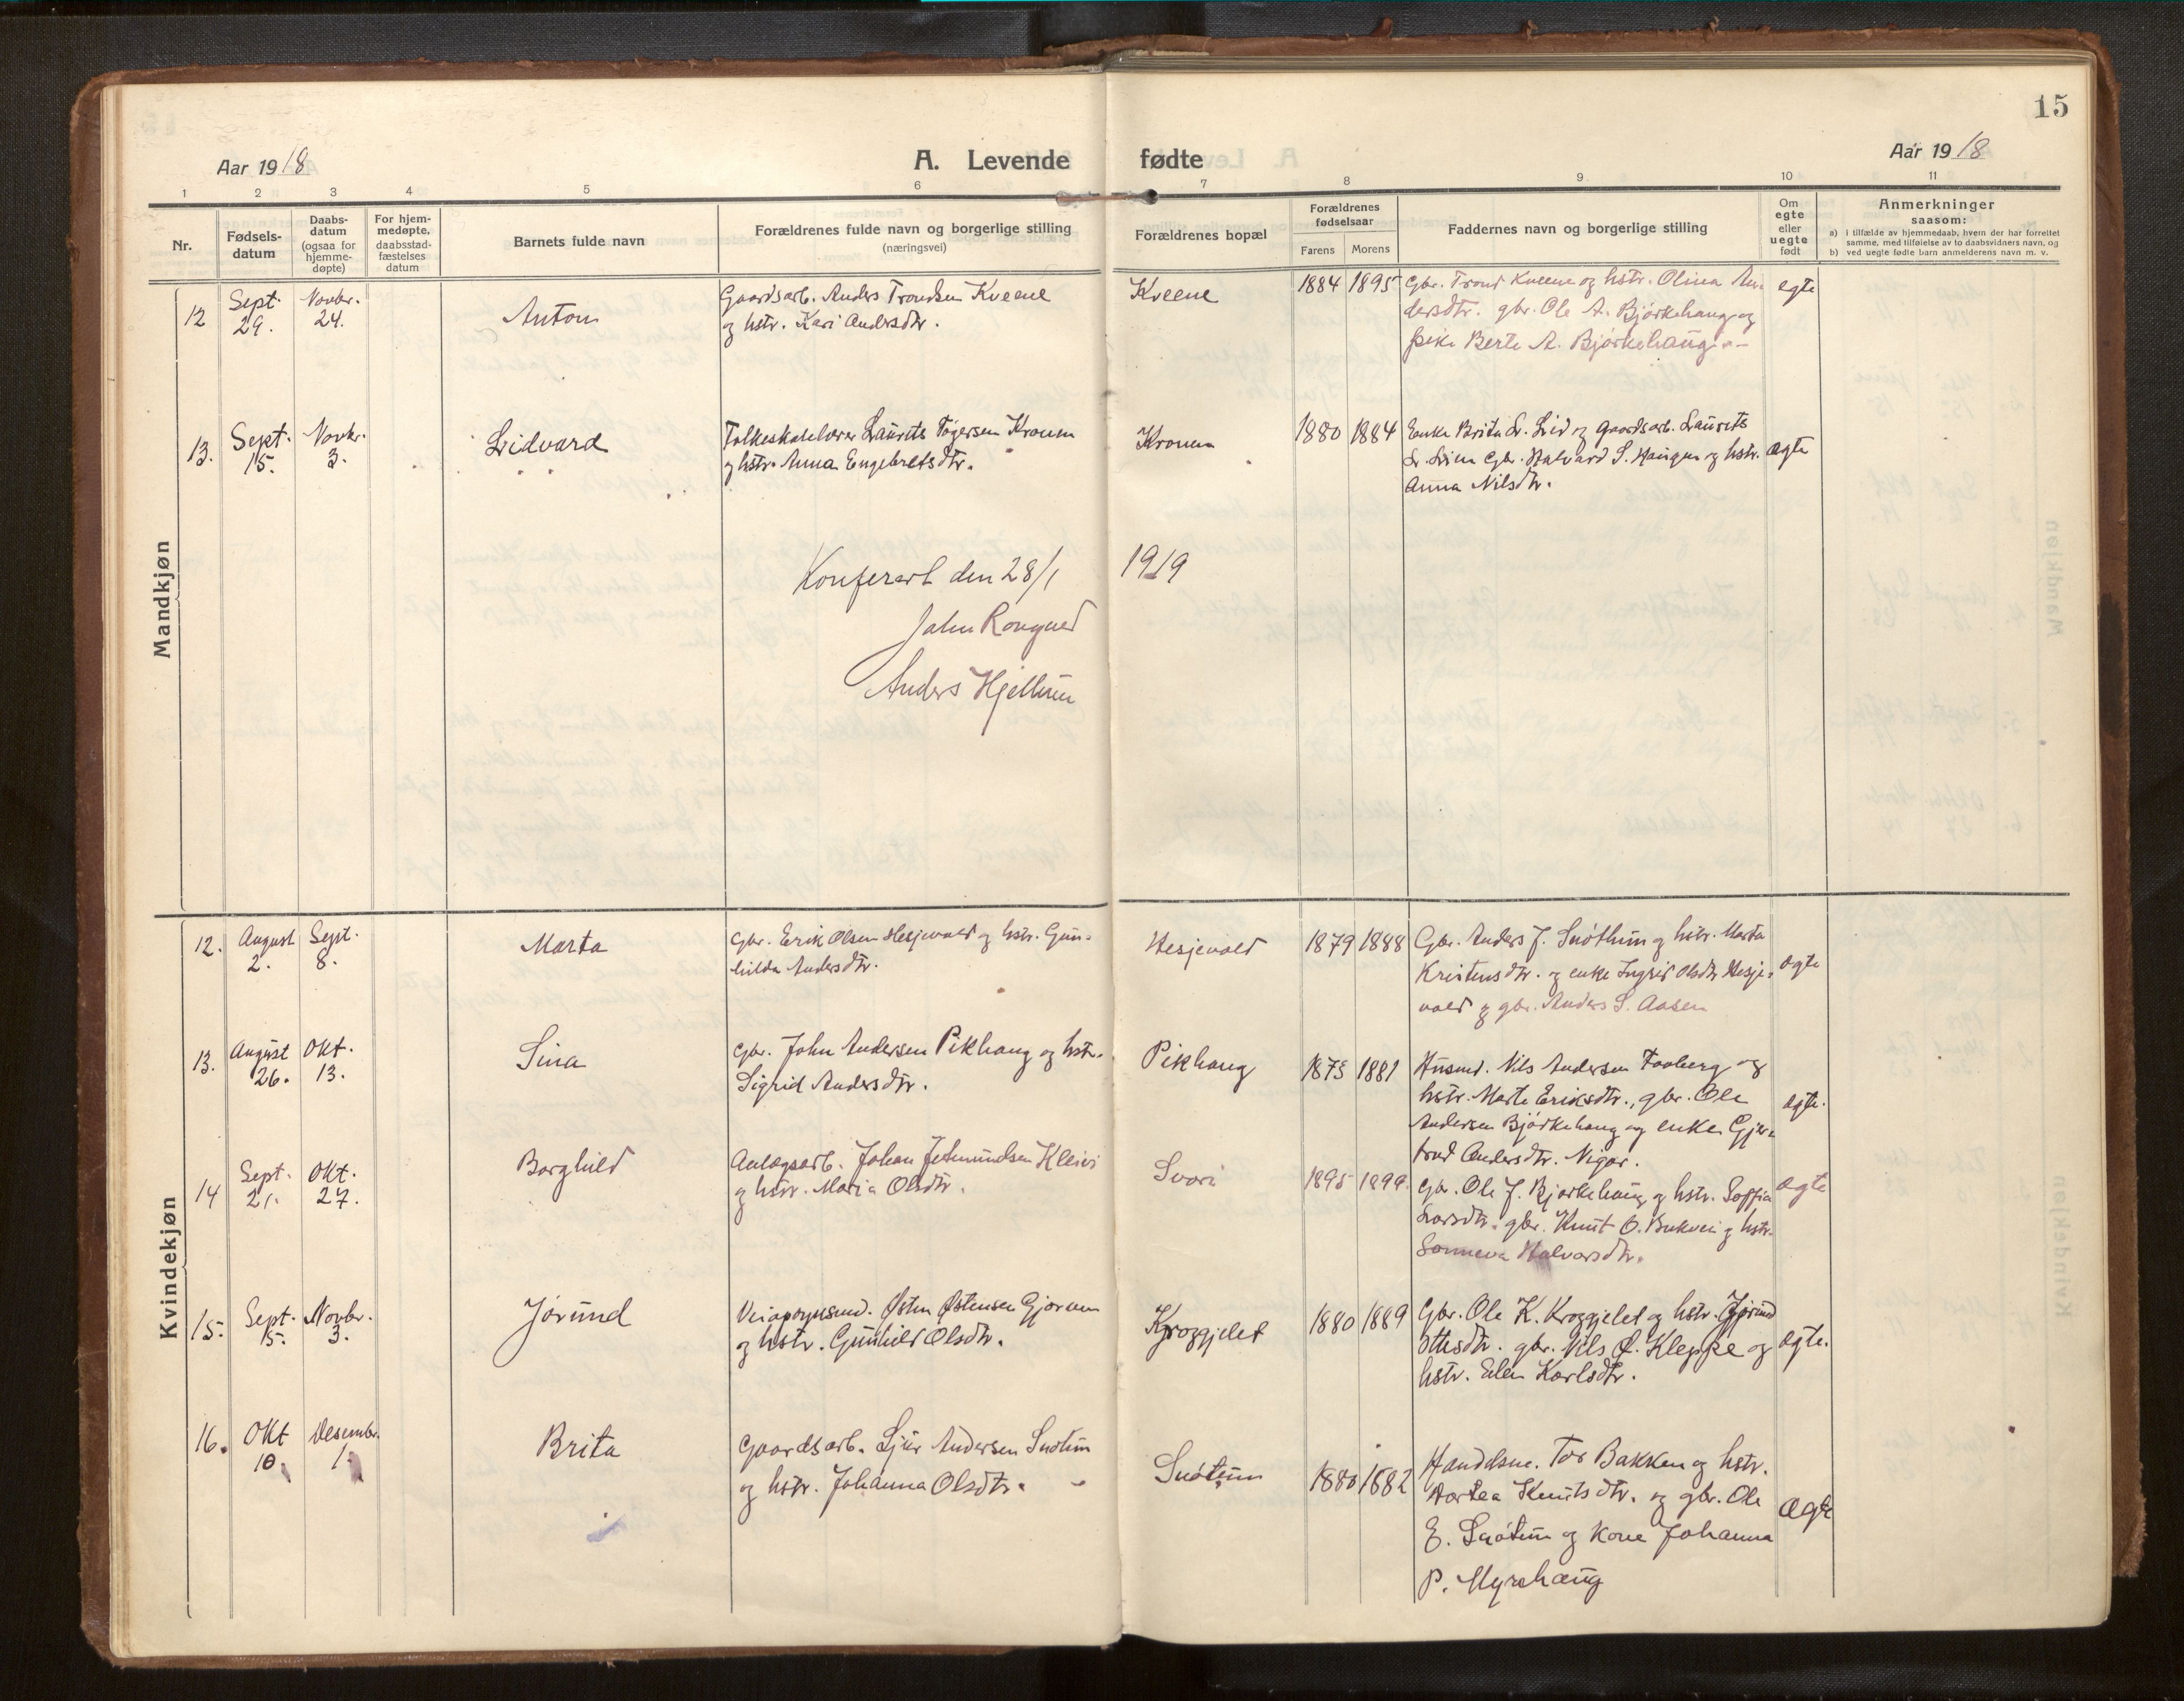 15
Aar 1918
A. Levende fødte
Aar 1918
1 2 3 4 5 6 7 8 9 10 11
Nr.
Fødsels-
datum
Daabs-
datum
(ogsaa for
hjemme-
døpte)
For hjem-
medøpte,
daabsstad-
fæstelses
datum
Barnets fulde navn
Forældrenes fulde navn og borgerlige stilling
(næringsvei)
Forældrenes bopæl
Forældrenes
fødselsaar
Farens Morens
Faddernes navn og borgerlige stilling
Om
egte
eller
uegte
født
Anmerkninger
saasom:
a) i tilfælde av hjemmedaab, hvem der har forrettet
samme, med tilføielse av to daabsvidners navn, og
b) ved uegte fødte barn anmelderens navn m. v.
Mandkjøn
12
Sept.
29.
Novbr.
24.
Anton
Gaardsarb. Anders Trondsen Kveene
og hstr. Kari Andersdtr.
Kveene
1884 1895
Gbr. Trond Kveene og hstr. Olina An-
dersdtr. gbr. Ole A. Bjørkehaug og
pike Berte A. Bjørkehaug
egte
13.
Sept.
15.
Novbr.
3.
Lidvard
Folkeskolelærer Laurits Togersen Kronen
og hstr. Anna Engebretsdtr.
Kronen
1880 1884
Enke Brita L. Lid og gaardsarb. Laurits
L. Lien Gbr. Halvard S. Haugen og hstr.
Anna Nilsdtr.
ægte
Konferert den 28/1 1919
John Rongved
Anders Hjellum
Kvindekjøn
12.
August
2.
Sept.
8.
Marta
Gbr. Erik Olsen Hesjevold og hstr. Gun-
hilda Andersdtr.
Hesjevold
1879 1888
Gbr. Anders J. Snøthun og hstr. Marta
Kristensdtr. og enke Ingrid Olsdtr. Hesje-
vold og gbr. Anders S. Aasen
ægte
13.
August
26.
Okt.
13.
Sina
Gbr. John Andersen Pikhaug og hstr.
Sigrid Andersdtr.
Pikhaug
1875 1881
Husmd. Nils Andersen Faaberg og
hstr. Marte Eriksdtr., gbr. Ole
Andersen Bjørkehaug og enke Gjer-
trud Andersdtr. Nigar.
ægte.
14
Sept.
21.
Okt.
27.
Borghild
Anlægsarb. Johan Jetmundsen Kleivi
og hstr. Maria Olsdtr.
Svori
1895 1899.
Gbr. Ole J. Bjørkehaug og hstr. Soffia
Larsdtr. gbr. Knut O. Bukvei og hstr.
Sanneva Halvarsdtr.
ægte
15.
Sept.
15.
Novbr.
3.
Jørund
Veiopsynsmd. Østen Østensen Gjerven
og hstr. Gunhild Olsdtr.
Kroggjelet
1880 1889
Gbr. Ole K. Kroggjelet og hstr. Jørund
Ottesdtr. gbr. Nils Ø. Kleppe og
hstr. Elen Karlsdtr.
ægte.
16.
Okt
10.
Desember.
1.
Brita
Gaardsarb. Sjur Andersen Snøtun
og hstr. Johanna Olsdtr.
Snøtun
1880 1882
Handelsm. Tor Bakken og hstr.
Dortea Knutsdtr. og gbr. Ole
E. Snøtun og kone Johanna
P. Myrehaug
ægte